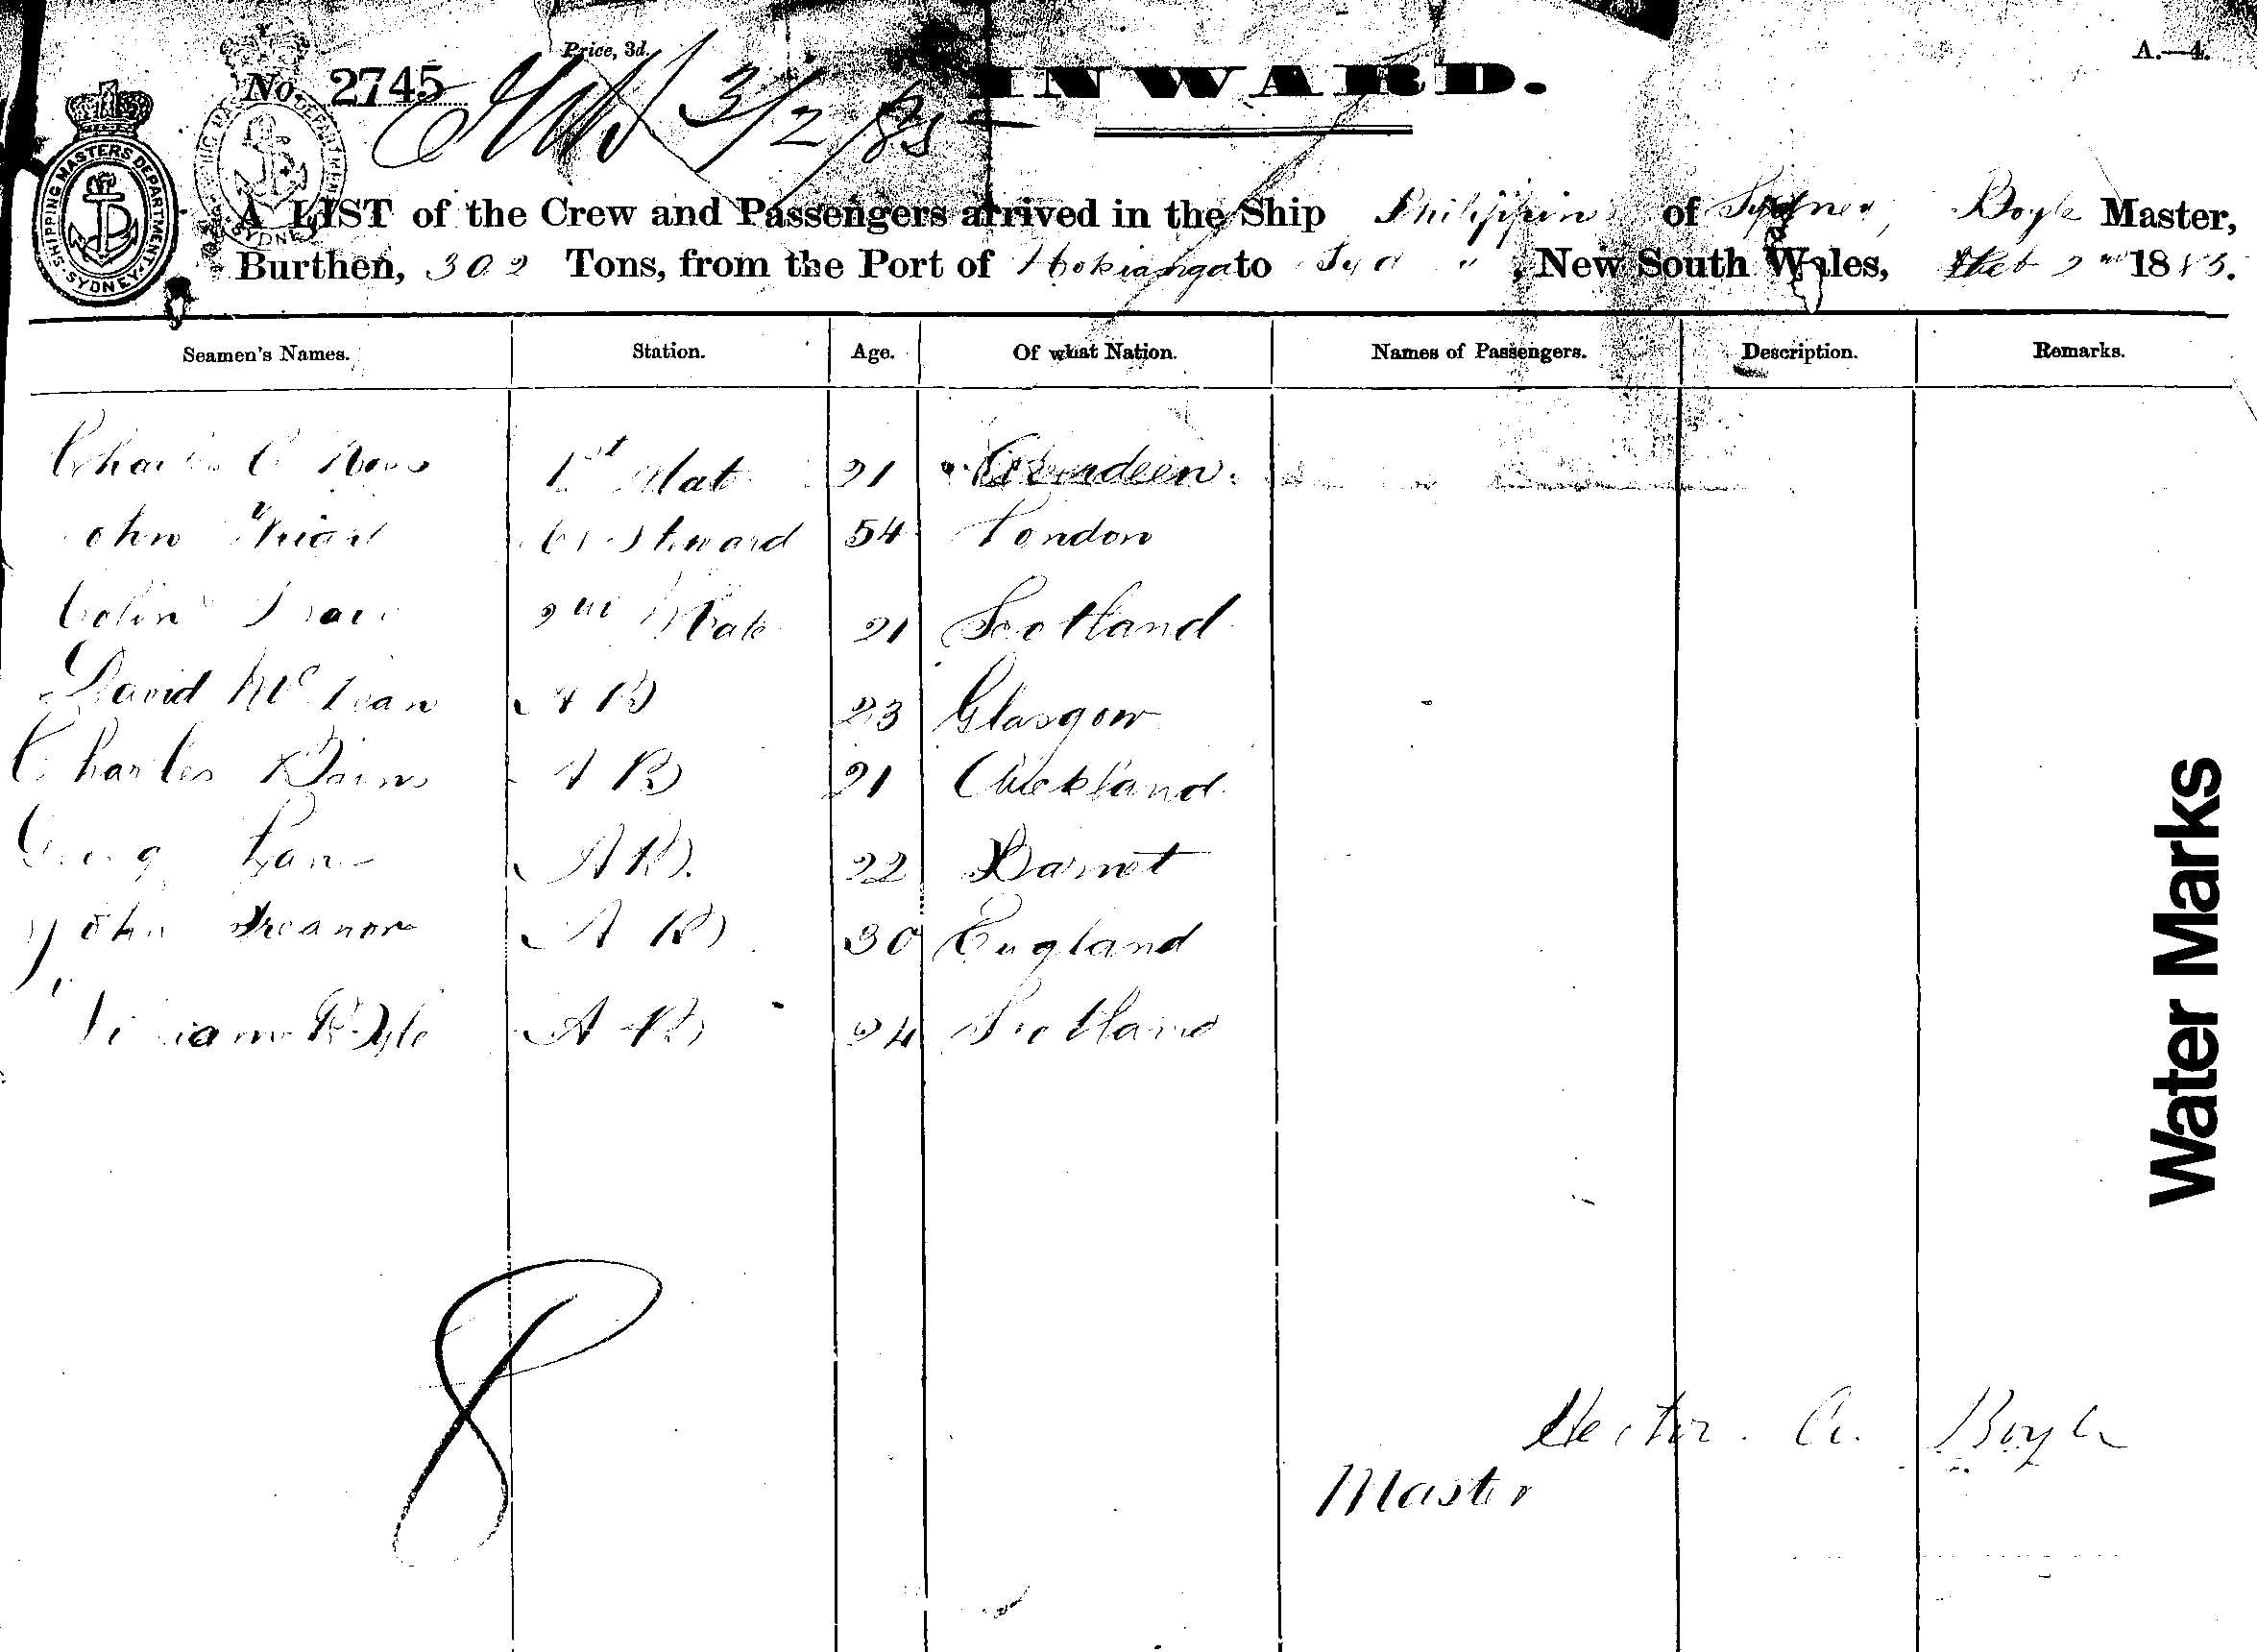 Price, 3d.
A.—4.
No. 2745
3/2/85
INWARD.
SHIPPING MASTERS DEPARTMENT SYDNEY
A LIST of the Crew and Passengers arrived in the Ship of Sydney, Boyle Master,
Burthen, 302 Tons, from the Port of Hokianga to Syd , New South Wales, Feb 2nd 1885.
Seamen's Names. Station. Age. Of what Nation. Names of Passengers. Description. Remarks.
Charles C 1st Mat 21 Aberdeen.
John Steward 54 London
Colin 2nd Mate 21 Scotland
David Mc Lean A B 23 Glasgow
Charles A B 21 Auckland
Lane A B. 22 Barnet
John Treanor A B 30 England
William Boyle A B 24 Scotland
8
Hector. A. Boyle
Master
Water Marks